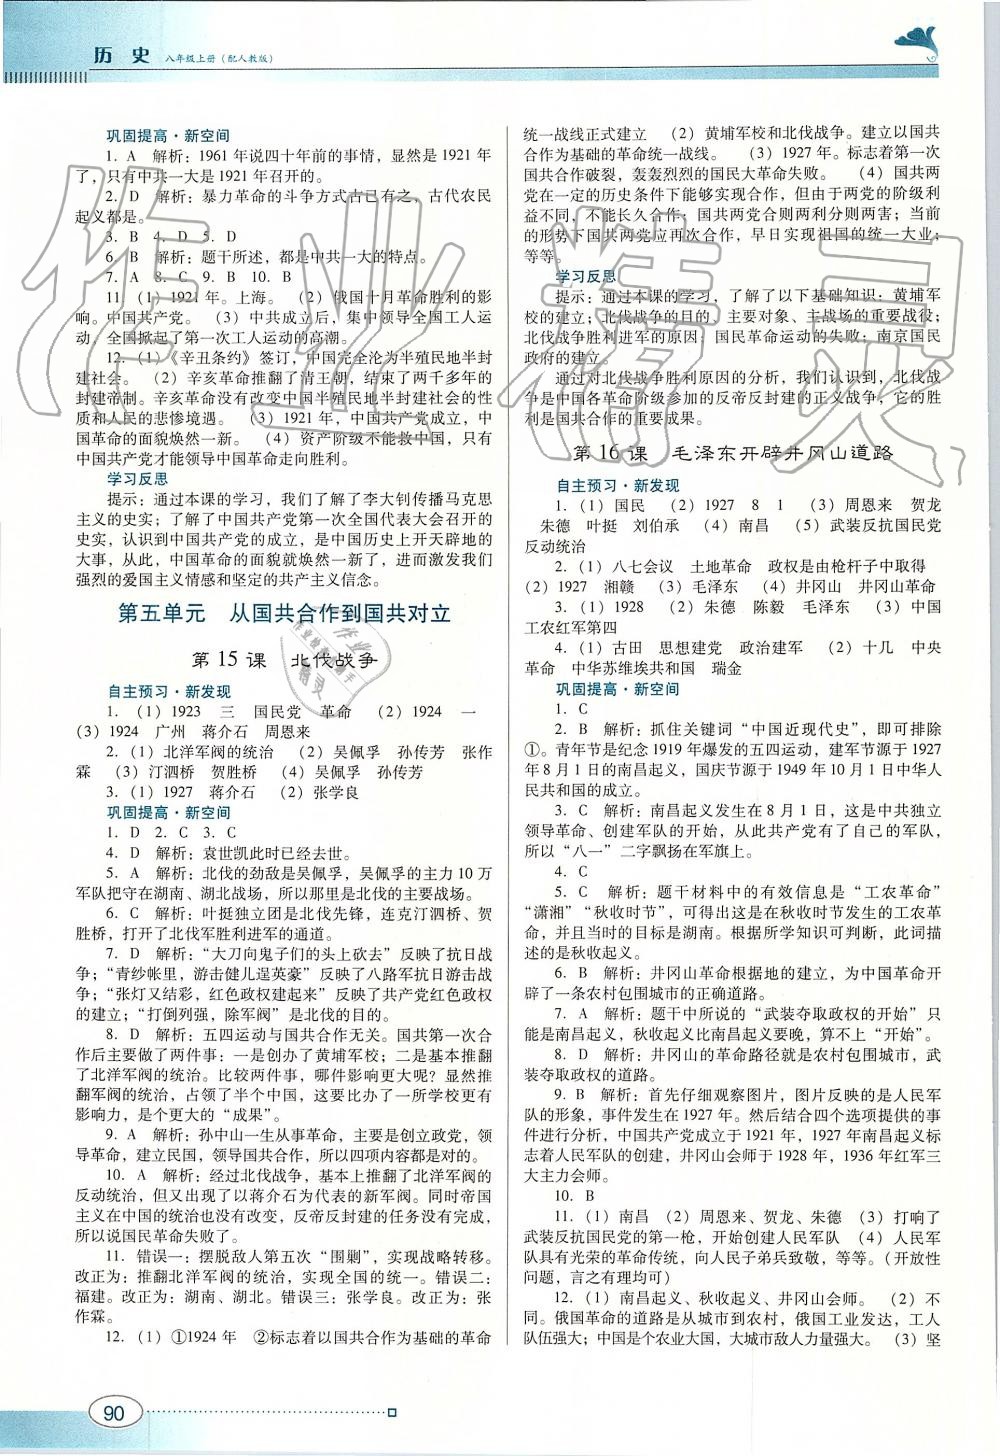 历 史 八年级上册(配人教版)
巩固提高·新空间
1. A 解析：1961 年说四十年前的事情，显然是 1921 年
了，只有中共一大是 1921 年召开的。
2. D 解析：暴力革命的斗争方式古已有之，古代农民
起义都是。
3. B 4. D 5. D
6. B 解析：题干所述，都是中共一大的特点。
7. A 8. C 9. B 10. B
11. (1) 1921 年。上海。 (2) 俄国十月革命胜利的影
响。中国共产党。 (3) 中共成立后，集中领导全国工人运
动，全国掀起了第一次工人运动的高潮。
12. (1)《辛丑条约》签订，中国完全沦为半殖民地半封
建社会。 (2) 辛亥革命推翻了清王朝，结束了两千多年的
封建帝制。辛亥革命没有改变中国半殖民地半封建社会的性
质和人民的悲惨境遇。 (3) 1921 年，中国共产党成立，中
国革命的面貌焕然一新。 (4) 资产阶级不能救中国，只有
中国共产党才能领导中国革命走向胜利。
学习反思
提示：通过本课的学习，我们了解了李大钊传播马克思
主义的史实；了解了中国共产党第一次全国代表大会召开的
史实，认识到中国共产党的成立，是中国历史上开天辟地的
大事，从此，中国革命的面貌就焕然一新了，进而激发我们
强烈的爱国主义情感和坚定的共产主义信念。
第五单元 从国共合作到国共对立
第 15 课 北伐战争
自主预习·新发现
1. (1) 1923 三 国民党 革命 (2) 1924 一
(3) 1924 广州 蒋介石 周恩来
2. (1) 北洋军阀的统治 (2) 吴佩孚 孙传芳 张作
霖 (3) 汀泗桥 贺胜桥 (4) 吴佩孚 孙传芳
3. (1) 1927 蒋介石 (2) 张学良
巩固提高·新空间
1. D 2. C 3. C
4. D 解析：袁世凯此时已经去世。
5. A 解析：北伐的劲敌是吴佩孚，吴佩孚的主力 10 万
军队把守在湖南、湖北战场，所以那里是北伐的主要战场。
6. C 解析：叶挺独立团是北伐先锋，连克汀泗桥、贺
胜桥，打开了北伐军胜利进军的通道。
7. D 解析：“大刀向鬼子们的头上砍去” 反映了抗日战
争；“青纱帐里，游击健儿逞英豪” 反映了八路军抗日游击战
争；“张灯又结彩，红色政权建起来” 反映了共产党红色政权
的建立；“打倒列强，除军阀” 是北伐的目的。
8. D 解析：五四运动与国共合作无关。国共第一次合
作后主要做了两件事：一是创办了黄埔军校；二是基本推翻
了北洋军阀的统治。比较两件事，哪件影响更大呢？显然推
翻军阀的统治，占领了半个中国，这要比办了一所学校更有
影响力，是个更大的 “成果”。
9. A 解析：孙中山一生从事革命，主要是创立政党，领
导革命，建立民国，领导国共合作，所以四项内容都是对的。
10. A 解析：经过北伐战争，基本上推翻了北洋军阀的
反动统治，但又出现了以蒋介石为代表的新军阀。同时帝国
主义在中国的统治也没有改变，反帝反封建的任务没有完成，
所以说国民革命失败了。
11. 错误一：摆脱敌人第五次 “围剿”，实现战略转移。
改正为：推翻北洋军阀的统治，实现全国的统一。错误二：
福建。改正为：湖南、湖北。错误三：张学良。改正为：张
作霖。
12. (1) ①1924 年 ②标志着以国共合作为基础的革命
统一战线正式建立 (2) 黄埔军校和北伐战争。建立以国共
合作为基础的革命统一战线。 (3) 1927 年。标志着第一次
国共合作破裂，轰轰烈烈的国民大革命失败。 (4) 国共两
党在一定的历史条件下能够实现合作，但由于两党的阶级利
益不同，不能长久合作；国共两党合则两利分则两害；当前
的形势下国共两党应再次合作，早日实现祖国的统一大业；
等等。
学习反思
提示：通过本课的学习，了解了以下基础知识：黄埔军
校的建立；北伐战争的目的、主要对象、主战场的重要战役；
北伐战争胜利进军的原因；国民革命运动的失败；南京国民
政府的建立。
通过对北伐战争胜利原因的分析，我们认识到，北伐战
争是中国各革命阶级参加的反帝反封建的正义战争，它的胜
利是国共合作的重要成果。
第 16 课 毛泽东开辟井冈山道路
自主预习·新发现
1. (1) 国民 (2) 1927 8 1 (3) 周恩来 贺龙
朱德 叶挺 刘伯承 (4) 南昌 (5) 武装反抗国民党
反动统治
2. (1) 八七会议 土地革命 政权是由枪杆子中取得
(2) 1927 湘赣 (3) 毛泽东 (4) 井冈山 井冈山革命
3. (1) 1928 (2) 朱德 陈毅 毛泽东 (3) 中国
工农红军第四
4. (1) 古田 思想建党 政治建军 (2) 十几 中央
革命 中华苏维埃共和国 瑞金
巩固提高·新空间
1. C
2. B 解析：抓住关键词 “中国近现代史”，即可排除
①。青年节是纪念 1919 年爆发的五四运动，建军节源于 1927
年 8 月 1 日的南昌起义，国庆节源于 1949 年 10 月 1 日中华人
民共和国的成立。
3. C 解析：南昌起义发生在 8 月 1 日，这是中共独立
领导革命、创建军队的开始，从此共产党有了自己的军队，
所以 “八一” 二字飘扬在军旗上。
4. C
5. C 解析：题干材料中的有效信息是 “工农革命”
“潇湘” “秋收时节”，可得出这是在秋收时节发生的工农革
命，并且当时的目标是湖南。根据所学知识可判断，此词描
述的是秋收起义。
6. B 解析：井冈山革命根据地的建立，为中国革命开
辟了一条农村包围城市的正确道路。
7. A 解析：题干中所说的 “武装夺取政权的开始” 只
能是南昌起义，秋收起义比南昌起义要晚，算不上 “开始”。
8. D 解析：井冈山的革命路径就是农村包围城市，武
装夺取政权的道路。
9. B 解析：首先仔细观察图片，图片反映的是人民军
队的形象，事件发生在 1927 年。然后结合四个选项提供的事
件进行分析，中国共产党成立于 1921 年，1927 年南昌起义标
志着人民军队的创建，井冈山会师于 1928 年，1936 年红军三
大主力会师。
10. B
11. (1) 南昌 (2) 周恩来、贺龙、朱德 (3) 打响了
武装反抗国民党的第一枪，开始创建人民军队 (4) 人民军
队具有光荣的革命传统，向人民子弟兵致敬，等等。（开放性
问题，言之有理均可）
12. (1) 南昌起义、秋收起义、井冈山会师。 (2) 不
同。俄国革命的道路是从城市到农村，俄国工业发达，工人
队伍强大；中国是个农业大国，大城市敌人力量强大。 (3) 坚
90
作业精灵